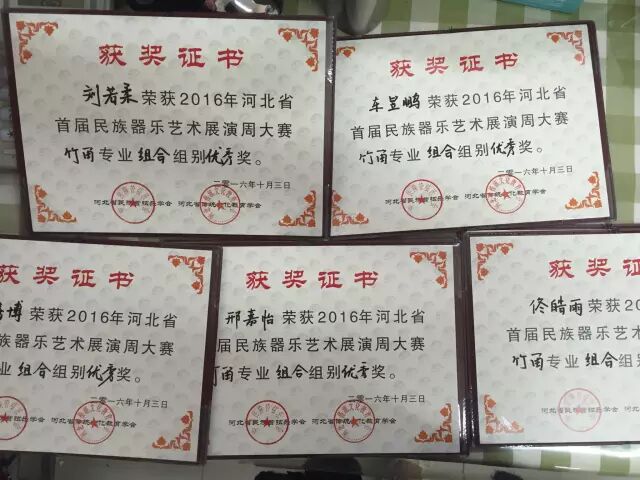 获奖证书
刘若柔荣获2016年河北省
首届民族器乐艺术展演周大赛
竹笛专业组合组别优秀奖。
二零一六年十月三日
河北省民族管弦乐学会 河北省传统文化教育学会
获奖证书
车昱鹏荣获2016年河北省
首届民族器乐艺术展演周大赛
竹笛专业组合组别优秀奖。
二零一六年十月三日
河北省民族管弦乐学会 河北省传统文化教育学会
获奖证书
博荣获2016年河北省
族器乐艺术展演周大赛
专业组合组别优秀奖。
二零一六年十月三日
乐学会 河北省传统文化教育学会
获奖证书
邢嘉怡荣获2016年河北省
首届民族器乐艺术展演周大赛
笛专业组合组别优秀奖。
二零一六年十月三日
河北省民族管弦乐学会 河北省传统文化教育学会
获奖证
佟皓雨荣获20
首届民族器乐艺术展
竹笛专业组合组别
河北省民族管弦乐学会